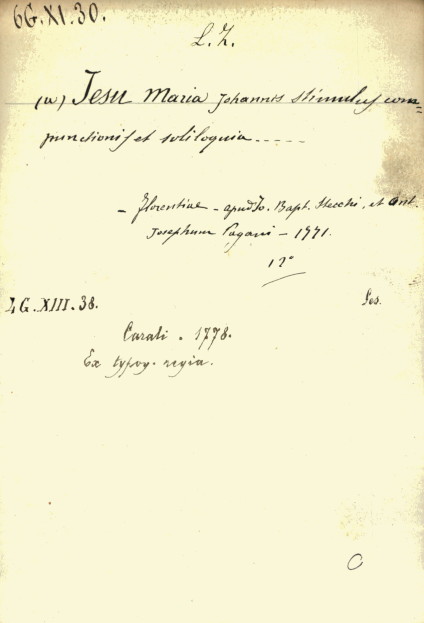 6G.XI.30.
L. Z.
(a) Jesu Maria Johannis stimulus com=
punctionis et soliloquia.....
- Florentiae - apud Jo. Bapt. Stecchi, et Ant.
Josephum Pagani - 1771.
12°
4G.XIII.38.
Carali. 1778.
Ex typog. regia.
C